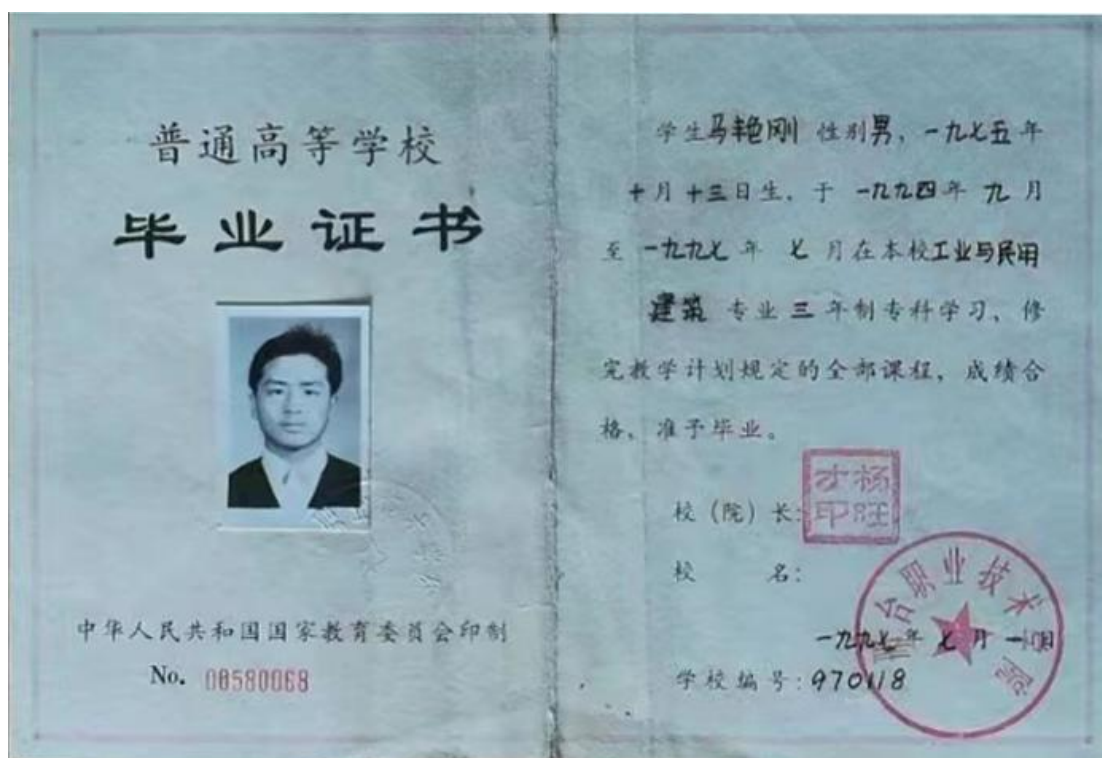 普通高等学校
毕业证书
中华人民共和国国家教育委员会印制
No. 00580068
学生马艳刚 性别男，一九七五年
十月十三日生，于 一九九四年 九月
至 一九九七 年 七 月在本校工业与民用
建筑 专业 三 年制专科学习，修
完教学计划规定的全部课程，成绩合
格，准予毕业。
校（院）长：
杨旺才印
校 名：
职业技术
一九九七年 七月 一日
学校编号：970118